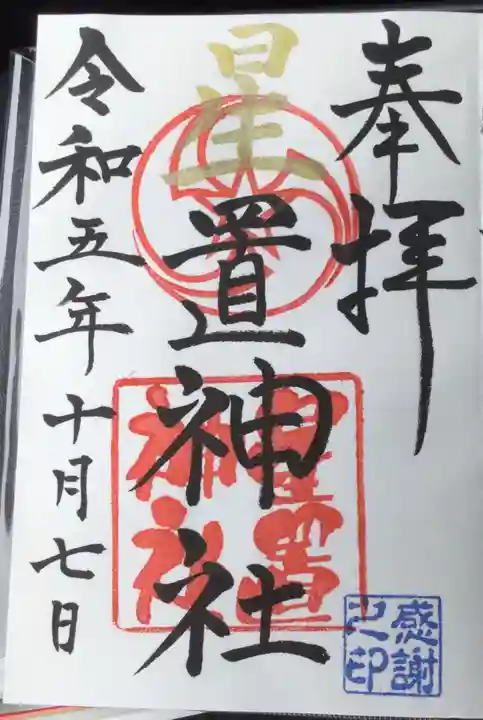 奉拝
星置神社
令和五年十月七日
星置
神社
感謝
之印